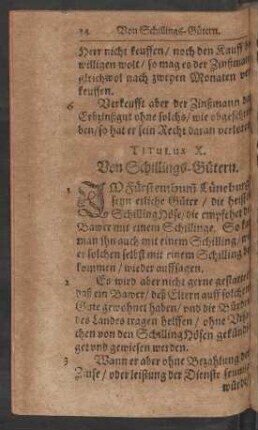 24 Von Schillings-Gütern.
Herr nicht keuffen / noch den Kauff be-
willigen wolt / so mag es der Zinßmann
gleichwol nach zweyen Monaten ver-
keuffen.
6 Verkeufft aber der Zinßmann das
Erbzinßgut ohne solchs / wie obgeschrie-
ben / so hat er sein Recht daran verloren.
TITULUS X.
Von Schillings-Gütern.
1 IM Fürstenthumb Lüneburg
seyn etliche Güter / die heissen
SchillingHöfe / die empfehet der
Bawer mit einem Schillinge. So kan
man ihn auch mit einem Schilling / wie
er solchen selbst mit einem Schilling be-
kommen / wieder auffsagen.
2 Es wird aber nicht gerne gestattet /
daß ein Bawer / deß Eltern auff solchem
Gute gewohnet haben / und die Bürden
des Landes tragen helffen / ohne
chen von den SchillingHöfen gekündi-
get und gewiesen werden.
3 Wann er aber ohne Bezahlung der
Zinse / oder leistung der Dienste seumig
würde /